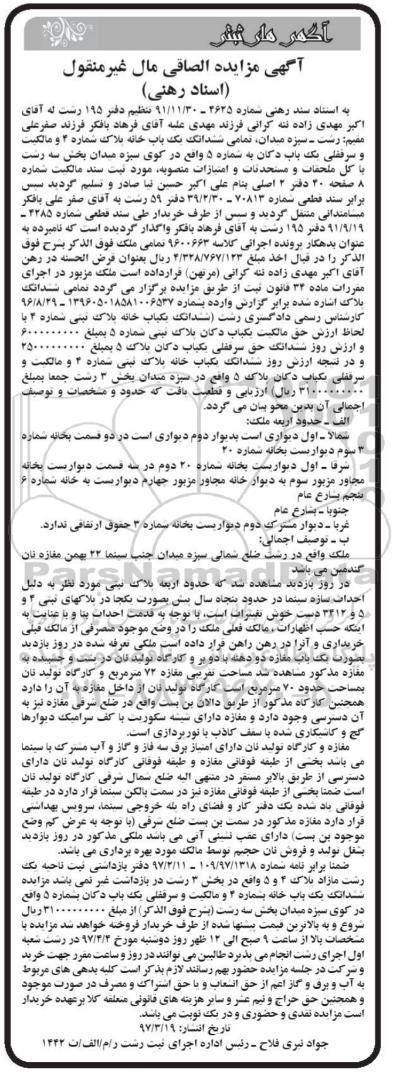 آگهی های ثبتی
آگهی مزایده الصاقی مال غیرمنقول
(اسناد رهنی)
به استناد سند رهنی شماره ۴۶۲۵ - ۹۱/۱۱/۳۰ تنظیم دفتر ۱۹۵ رشت له آقای
اکبر مهدی زاده ننه کرانی فرزند مهدی علیه آقای فرهاد بافکر فرزند صفرعلی
مقیم: رشت - سبزه میدان، تمامی ششدانگ یک باب خانه پلاک شماره ۴ و مالکیت
و سرقفلی یک باب دکان به شماره ۵ واقع در کوی سبزه میدان بخش سه رشت
با کل ملحقات و مستحدثات و امتیازات منصوبه، مورد ثبت سند مالکیت شماره
۸ صفحه ۴۰ دفتر ۲ اصلی بنام علی اکبر حسین نیا صادر و تسلیم گردید سپس
برابر سند قطعی شماره ۷۰۸۱۳ - ۳۹/۲/۳۰ دفتر ۵۹ رشت به آقای صفر علی بافکر
میشامندانی منتقل گردید و سپس از طرف خریدار طی سند قطعی شماره ۴۲۸۵ -
۹۱/۹/۱۹ دفتر ۱۹۵ رشت به آقای فرهاد بافکر واگذار گردیده است که نامبرده به
عنوان بدهکار پرونده اجرائی کلاسه ۹۶۰۰۶۶۳ تمامی ملک فوق الذکر بشرح فوق
الذکر را در قبال اخذ مبلغ ۴/۳۲۸/۷۶۷/۱۲۳ ریال بعنوان قرض الحسنه در رهن
آقای اکبر مهدی زاده ننه کرانی (مرتهن) قرارداده است ملک مزبور در اجرای
مقررات ماده ۳۴ قانون ثبت از طریق مزایده برگزار می گردد تمامی ششدانگ
پلاک اشاره شده برابر گزارش وارده بشماره ۱۳۹۶۰۵۰۱۸۵۸۱۰۰۶۵۳۷ - ۹۶/۸/۲۹
کارشناس رسمی دادگستری رشت (ششدانگ یکباب خانه پلاک ثبتی شماره ۴ با
لحاظ ارزش حق مالکیت یکباب دکان پلاک ثبتی شماره ۵ بمبلغ ۶۰۰۰۰۰۰۰۰۰
و ارزش روز ششدانگ حق سرقفلی یکباب دکان پلاک ۵ بمبلغ ۲۵۰۰۰۰۰۰۰۰۰
و در نتیجه ارزش روز ششدانگ یکباب خانه پلاک ثبتی شماره ۴ و مالکیت و
سرقفلی یکباب دکان پلاک ۵ واقع در سبزه میدان بخش ۳ رشت جمعا بمبلغ
۳۱۰۰۰۰۰۰۰۰۰ ریال) ارزیابی و قطعیت یافت که حدود و مشخصات و توصیف
اجمالی آن بدین نحو بیان می گردد.
الف - حدود اربعه ملک:
شمالا - اول دیواری است بدیوار دوم دیواری است در دو قسمت بخانه شماره
۳ سوم دیواریست بخانه شماره ۲۰
شرقا - اول دیواریست بخانه شماره ۲۰ دوم در سه قسمت دیواریست بخانه
مجاور مزبور سوم به دیوار خانه مجاور مزبور چهارم دیواریست به خانه شماره ۶
پنجم بشارع عام
جنوبا - بشارع عام
غربا - دیوار مشترک دوم دیواریست بخانه شماره ۳ حقوق ارتفاقی ندارد.
ب - توصیف اجمالی:
ملک واقع در رشت ضلع شمالی سبزه میدان جنب سینما ۲۲ بهمن مغازه نان
گندمین می باشد
در روز بازدید مشاهده شد که حدود اربعه پلاک ثبتی مورد نظر به دلیل
احداث سازه سینما در حدود پنجاه سال پیش بصورت یکجا در پلاکهای ثبتی ۴ و
۵ و ۳۴۱۲ دست خوش تغییرات است، با توجه به قدمت احداث بنا و با عنایت به
اینکه حسب اظهارات، مالک فعلی ملک را در وضع موجود متصرفی از مالک قبلی
خریداری و آنرا در رهن راهن قرار داده است ملکی تعرفه شده در روز بازدید
بصورت یک باب مغازه دو دهنه با دو بر و کارگاه تولید نان در پشت و چسبیده به
مغازه مذکور مشاهده شد مساحت تقریبی مغازه ۷۲ مترمربع و کارگاه تولید نان
بمساحت حدود ۷۰ مترمربع است کارگاه تولید نان از داخل مغازه به آن را دارد
همچنین کارگاه مذکور از طریق دالان بن بست واقع در ضلع شرقی مغازه نیز به
آن دسترسی وجود دارد و مغازه دارای شیشه سکوریت با کف سرامیک دیوارها
گچ و کاشیکاری شده با سقف کاذب با نورپردازی است.
مغازه و کارگاه تولید نان دارای امتیاز برق سه فاز و گاز و آب مشترک با سینما
می باشد بخشی از طبقه فوقانی مغازه و طبقه فوقانی کارگاه تولید نان دارای
دسترسی از طریق بالابر مستقر در منتهی الیه ضلع شمال شرقی کارگاه تولید نان
است ضمنا بخشی از طبقه فوقانی مغازه نیز در سمت بالکن سینما قرار دارد در طبقه
فوقانی یاد شده یک دفتر کار و فضای راه پله خروجی سینما، سرویس بهداشتی
قرار دارد مغازه مذکور در سمت بن بست ضلع شرقی (با توجه به عرض کم وضع
موجود بن بست) دارای عقب نشینی آتی می باشد ملکی مذکور در روز بازدید
بشغل تولید و فروش نان حجیم توسط مالک مورد بهره برداری می باشد.
ضمنا برابر نامه شماره ۱۰۹/۹۷/۱۳۱۸ - ۹۷/۲/۱۱ دفتر بازداشتی ثبت ناحیه یک
رشت مازاد پلاک ۴ و ۵ واقع در بخش ۳ رشت در بازداشت غیر نمی باشد مزایده
ششدانگ یک باب خانه بشماره ۴ و مالکیت و سرقفلی یک باب دکان بشماره ۵ واقع
در کوی سبزه میدان بخش سه رشت (بشرح فوق الذکر) از مبلغ ۳۱۰۰۰۰۰۰۰۰۰ ریال
شروع و به بالاترین قیمت پیشنهاد شده از طرف خریدار فروخته خواهد شد مزایده با
مشخصات بالا از ساعت ۹ صبح الی ۱۲ ظهر روز دوشنبه مورخ ۹۷/۴/۴ در رشت شعبه
اول اجرای رشت انجام می پذیرد طالبین می توانند در روز و ساعت مقرر جهت خرید
و شرکت در جلسه مزایده حضور بهم رسانند لازم بذکر است کلیه بدهی های مربوط
به آب و برق و گاز اعم از حق انشعاب و یا حق اشتراک و مصرف در صورت موجود
و همچنین حق حراج و نیم عشر و سایر هزینه های قانونی متعلقه کلا برعهده خریدار
است مزایده نقدی و حضوری و در یک نوبت می باشد.
تاریخ انتشار: ۹۷/۳/۱۹
جواد نیری فلاح - رئیس اداره اجرای ثبت رشت ر/م/الف/ت ۱۴۴۲